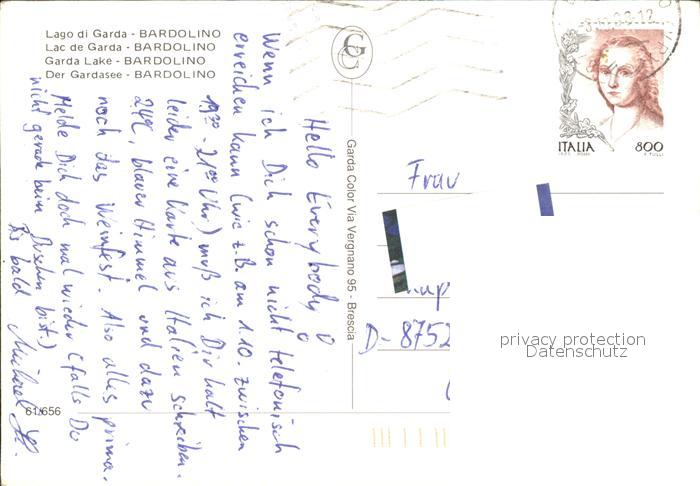 Lago di Garda - BARDOLINO
Lac de Garda - BARDOLINO
Garda Lake - BARDOLINO
Der Gardasee - BARDOLINO
Hello Everybody
Wenn ich Dich schon nicht telefonisch
erreichen kann (wie z.B. am 1.10. zwischen
19³⁰ - 21⁰⁰ Uhr) muß ich Dir halt
leider eine Karte aus Italien schreiben.
24°C, blauer Himmel und dazu
noch das Weinfest. Also alles prima.
Melde Dich doch mal wieder (falls Du
nicht gerade beim Duschen bist.)
Bis bald Michael
61/656
Garda Color Via Vergnano 95 - Brescia
ITALIA 800
Frau
D-8752
privacy protection
Datenschutz